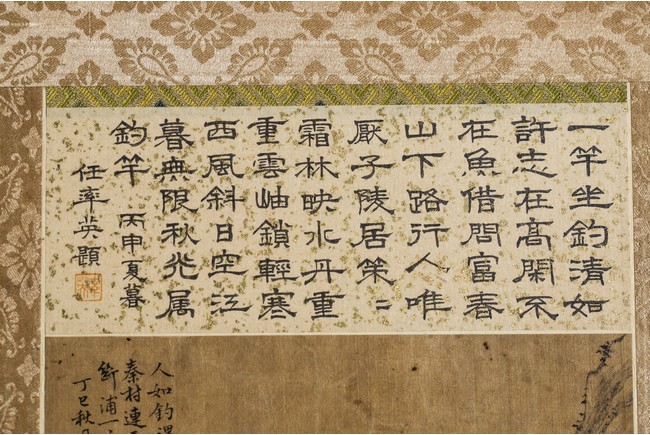 一竿坐釣清如
許志在高閑不
在魚借問富春
山下路行人唯
厭子陵居策〻
霜林映水丹重
重雲岫鎖輕寒
西風斜日空江
暮無限秋光属
釣竿 丙申夏暮
任率英題
人如釣渭
秦村連
浦一
丁巳秋